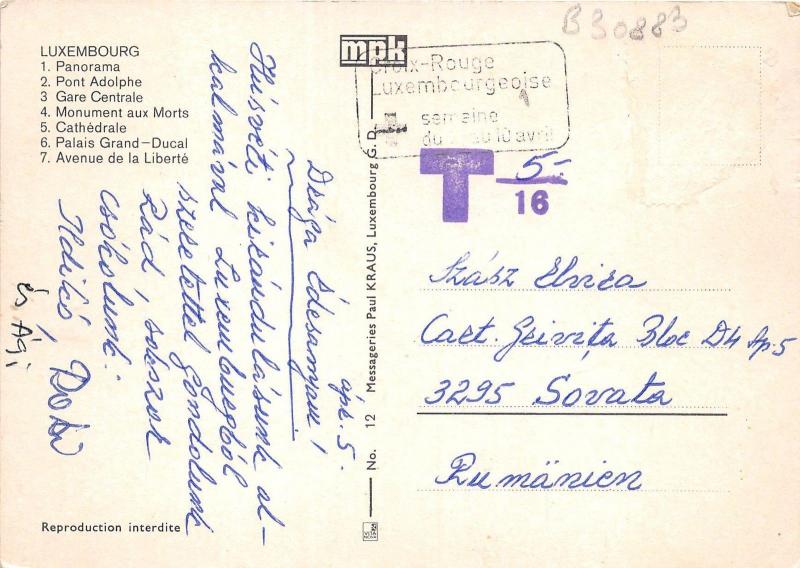 LUXEMBOURG
1. Panorama
2. Pont Adolphe
3 Gare Centrale
4. Monument aux Morts
5. Cathédrale
6. Palais Grand-Ducal
7. Avenue de la Liberté
ápr. 5.
Drága Édesanyám!
Húsvéti kirándulásunk al-
kalmával Luxemburgból
szeretettel gondolunk
Rád, sokszor
csókolunk:
Ildikó, Dodi
és Ági
Reproduction interdite
No. 12 Messageries Paul KRAUS, Luxembourg G. D.
mpk
Croix-Rouge
Luxembourgeoise
semaine
du au 10 avril
B30883
T 5-
16
Szász Elvira
Cart. Grivița Bloc D4 Ap. 5
3295 Sovata
Rumänien